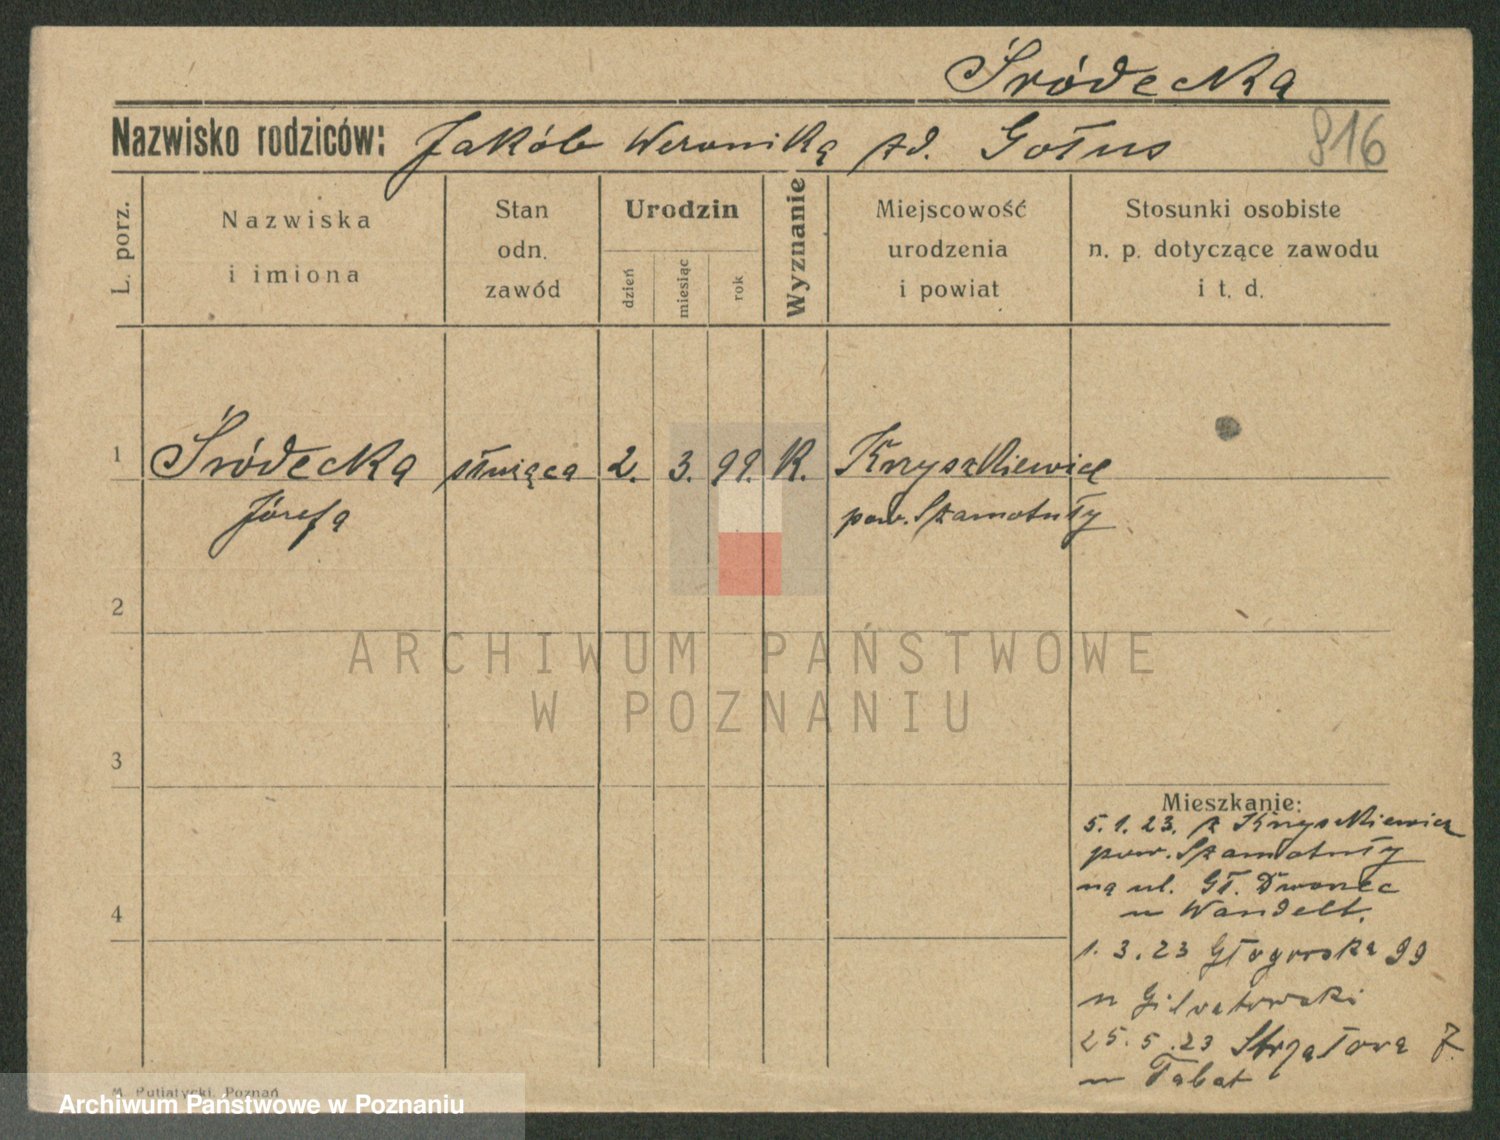 Śródecka
Nazwisko rodziców: Jakób Weronika zd. Gołus 816
L. porz.
Nazwiska
i imiona
Stan
odn.
zawód
Urodzin
dzień
miesiąc
rok
Wyznanie
Miejscowość
urodzenia
i powiat
Stosunki osobiste
n. p. dotyczące zawodu
i t. d.
1 Śródecka służąca 2. 3. 99. K.
Józefa pow. Szamotuły
2
3
4
ARCHIWUM PAŃSTWOWE
W POZNANIU
Mieszkanie:
5.1.23. z
pow. Szamotuły
na ul. Gł. Dworzec
u Wandelt.
1.3.23 Głogowska 99
u
25.5.23 Strzałowa 7.
u Tabat
M. Putiatycki, Poznań
Archiwum Państwowe w Poznaniu